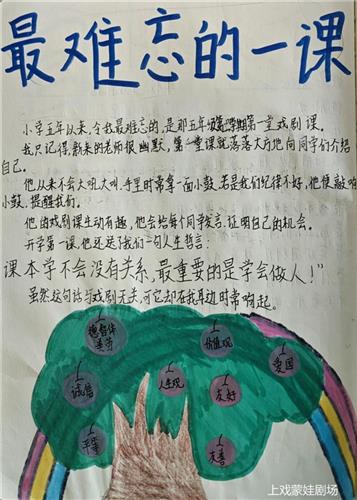 最难忘的一课
小学五年以来,令我最难忘的,是那五年级第一学期第一堂戏剧课。
我只记得,新来的老师很幽默,第一堂课就落落大方地向同学们介绍
自己。
他从来不会大吼大叫,手里时常拿一面小鼓,若是我们纪律不好,他便敲响
小鼓,提醒我们。
他的戏剧课生动有趣,他会给每个同学发言、证明自己的机会。
开学第一课,他还送了我们一句人生哲言:
课本学不会没有关系,最重要的是学会做人!”
虽然这句话与戏剧无关,可它却在我耳边时常响起。
德智体
美劳
价值观
爱国
诚信
人生观
友好
平等
友善
上戏蒙娃剧场